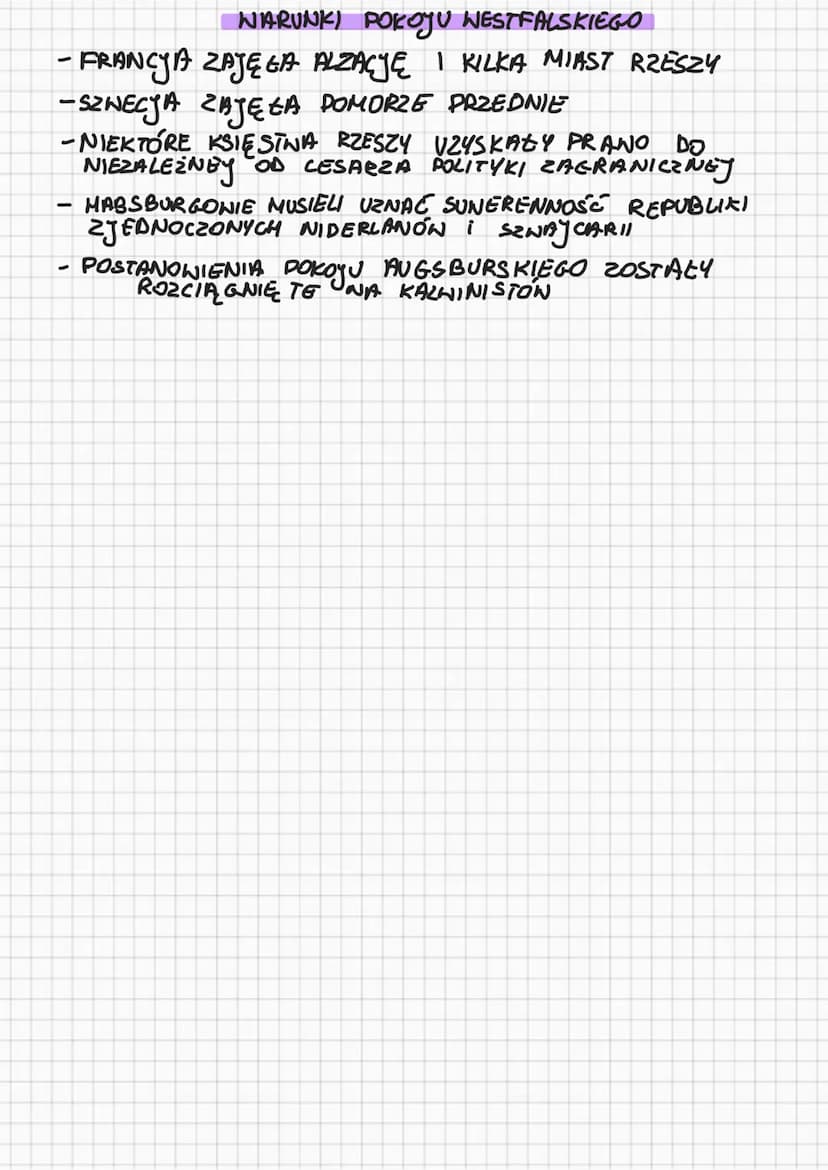 WARUNKI POKOJU WESTFALSKIEGO
- FRANCJA ZAJĘŁA ALZACJĘ I KILKA MIAST RZESZY
- SZWECJA ZAJĘŁA POMORZE PRZEDNIE
- NIEKTÓRE KSIĘSTWA RZESZY UZYSKAŁY PRAWO DO
NIEZALEŻNEJ OD CESARZA POLITYKI ZAGRANICZNEJ
- HABSBURGOWIE MUSIELI UZNAĆ SUWERENNOŚĆ REPUBLIKI
ZJEDNOCZONYCH NIDERLANÓW i SZWAJCARII
- POSTANOWIENIA POKOJU AUGSBURSKIEGO ZOSTAŁY
ROZCIĄGNIĘTE NA KALWINISTÓW